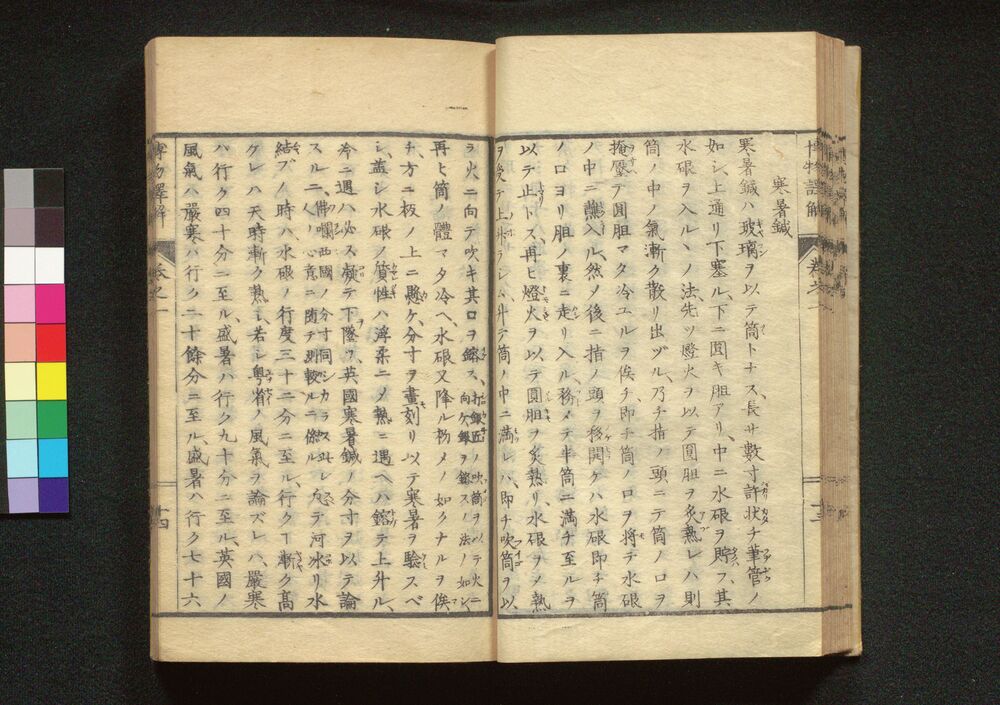 寒暑鍼
寒暑鍼ハ玻璃ヲ以テ筒トナス、長サ數寸許狀チ筆管ノ
如シ、上通リ下塞ル、下ニ圓キ胆アリ、中ニ水銀ヲ貯フ、其
水銀ヲ入ルヽノ法先ツ燈火ヲ以テ圓胆ヲ炙熱レハ則
筒ノ中ノ氣漸ク散リ出ヅル、乃チ指ノ頭ニテ筒ノ口ヲ
掩壓テ圓胆マタ冷エルヲ俟チ、即チ筒ノ口ヲ將テ水銀
ノ中ニ蘸入ル、然ノ後ニ指ノ頭ヲ移開ケハ水銀即チ筒
ノ口ヨリ胆ノ裏ニ走リ入ル、務メテ半筒ニ満チ至ルヲ
以テ止トス、再ヒ燈火ヲ以テ圓胆ヲ炙熱リ、水銀ヲメ熱
ヲ受テ上升ラシム、升テ筒ノ中ニ満レバ、即チ吹筒ヲ以
ラ火ニ向テ吹キ其口ヲ鎔ス、打銀匠ノ吹筒ヲ以テ火ニ向ケ銀ヲ鎔スノ法ノ如シ、
再ヒ筒ノ體マタ冷ヘ、水銀又降ル杪メノ如クナルヲ俟
チ、方ニ板ノ上ニ懸ケ分寸ヲ畫刻リ以テ寒暑ヲ驗スベ
シ、蓋シ水銀ノ質性ハ浮柔ニメ熱ニ遇ヘハ鎔テ上升ル、
冷ニ遇ハ必ス凝テ下墜ツ、英國寒暑鍼ノ分寸ヲ以テ論
スルニ、佛囒西國ノ分寸同シカラス此レ
人ノ心意ニ随テ測較ルニ係ル、
凡テ河水リ水
結ブノ時ハ水銀ノ行度三十二分ニ至ル、行クヿ漸ク高
クレハ天時漸ク熱シ、若シ粤省ノ風氣ヲ論ズレハ嚴寒
ハ行ク四十分ニ至ル、盛暑ハ行ク九十分ニ至ル、英國ノ
風氣ハ嚴寒ハ行ク二十餘分ニ至ル、盛暑ハ行ク七十六
博物譯解
卷之一
十四